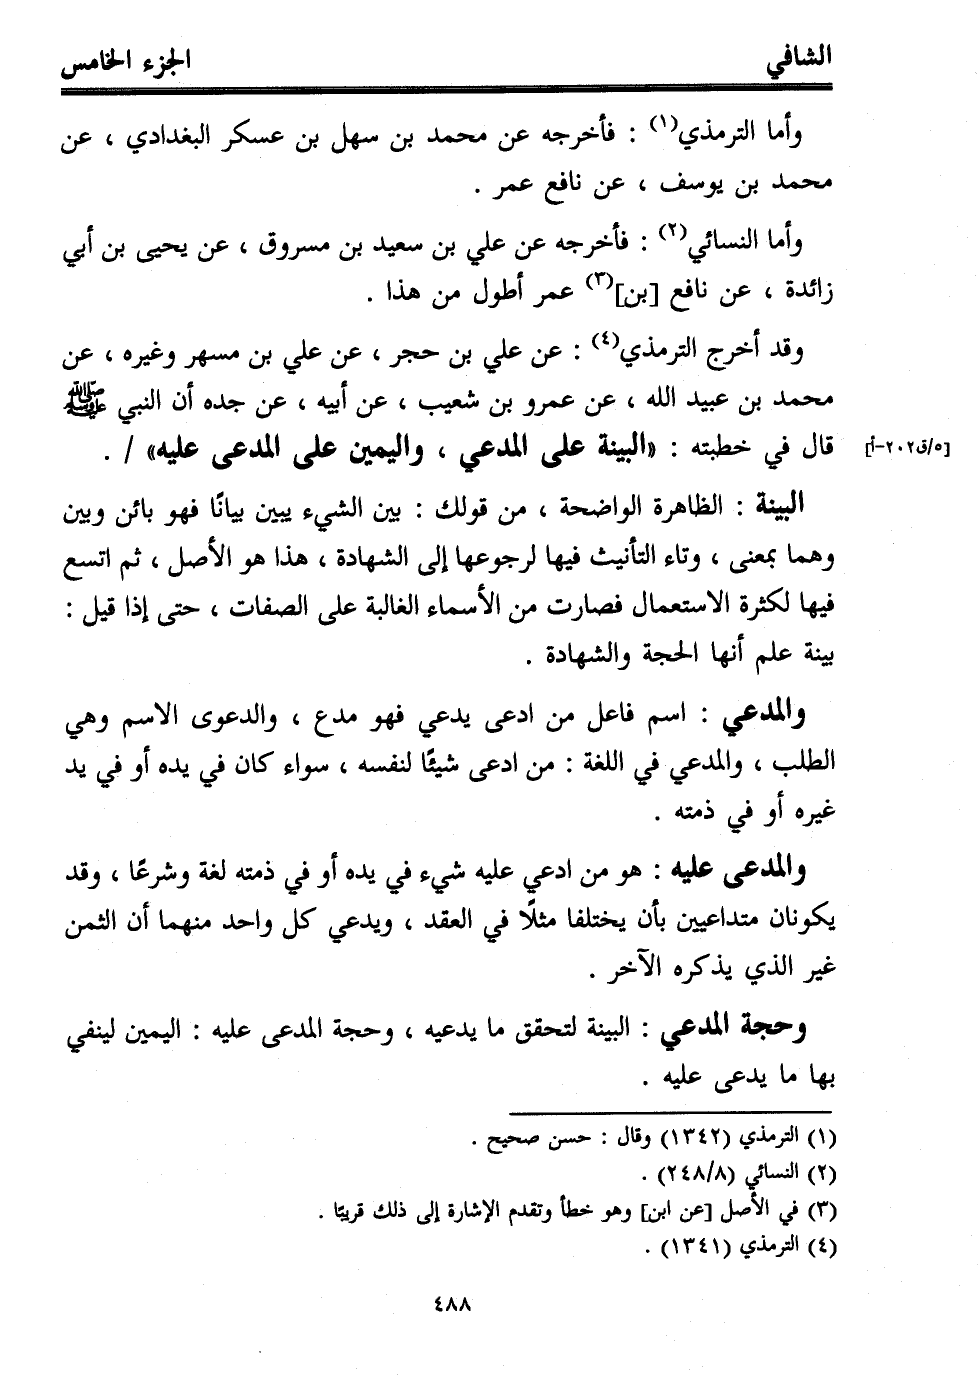 الشافي الجزء الخامس
وأما الترمذي(١) : فأخرجه عن محمد بن سهل بن عسكر البغدادي ، عن
محمد بن يوسف ، عن نافع عمر .
وأما النسائي(٢) : فأخرجه عن علي بن سعيد بن مسروق ، عن يحيى بن أبي
زائدة ، عن نافع [بن](٣) عمر أطول من هذا .
وقد أخرج الترمذي(٤) : عن علي بن حجر ، عن علي بن مسهر وغيره ، عن
محمد بن عبيد الله ، عن عمرو بن شعيب ، عن أبيه ، عن جده أن النبي ﷺ
قال في خطبته : «البينة على المدعي ، واليمين على المدعى عليه» / . [٥/ق٢٠٢-أ]
البينة : الظاهرة الواضحة ، من قولك : بين الشيء يبين بيانًا فهو بائن وبين
وهما بمعنى ، وتاء التأنيث فيها لرجوعها إلى الشهادة ، هذا هو الأصل ، ثم اتسع
فيها لكثرة الاستعمال فصارت من الأسماء الغالبة على الصفات ، حتى إذا قيل :
بينة علم أنها الحجة والشهادة .
والمدعي : اسم فاعل من ادعى يدعي فهو مدع ، والدعوى الاسم وهي
الطلب ، والمدعي في اللغة : من ادعى شيئًا لنفسه ، سواء كان في يده أو في يد
غيره أو في ذمته .
والمدعى عليه : هو من ادعي عليه شيء في يده أو في ذمته لغة وشرعًا ، وقد
يكونان متداعيين بأن يختلفا مثلًا في العقد ، ويدعي كل واحد منهما أن الثمن
غير الذي يذكره الآخر .
وحجة المدعي : البينة لتحقق ما يدعيه ، وحجة المدعى عليه : اليمين لينفي
بها ما يدعى عليه .
(١) الترمذي (١٣٤٢) وقال : حسن صحيح .
(٢) النسائي (٢٤٨/٨) .
(٣) في الأصل [عن ابن] وهو خطأ وتقدم الإشارة إلى ذلك قريبًا .
(٤) الترمذي (١٣٤١) .
٤٨٨